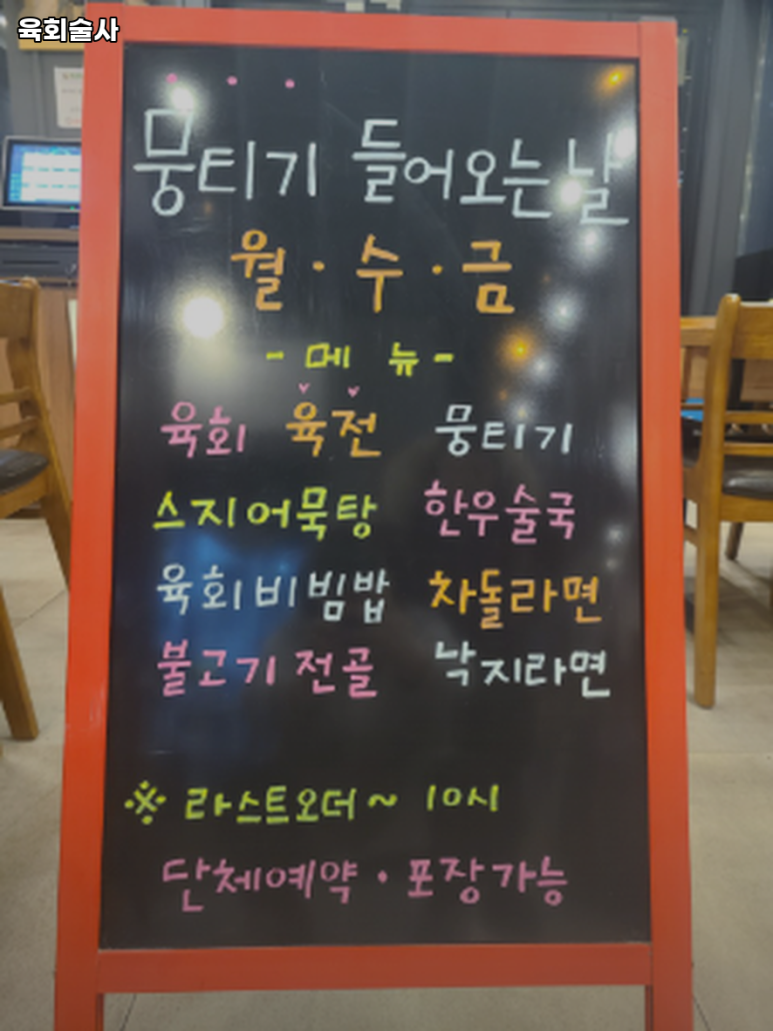 육회술사
뭉티기 들어오는 날
월·수·금
- 메 뉴 -
육회 육전 뭉티기
스지어묵탕 한우술국
육회비빔밥 차돌라면
불고기 전골 낙지라면
※ 라스트오더~ 10시
단체예약·포장가능